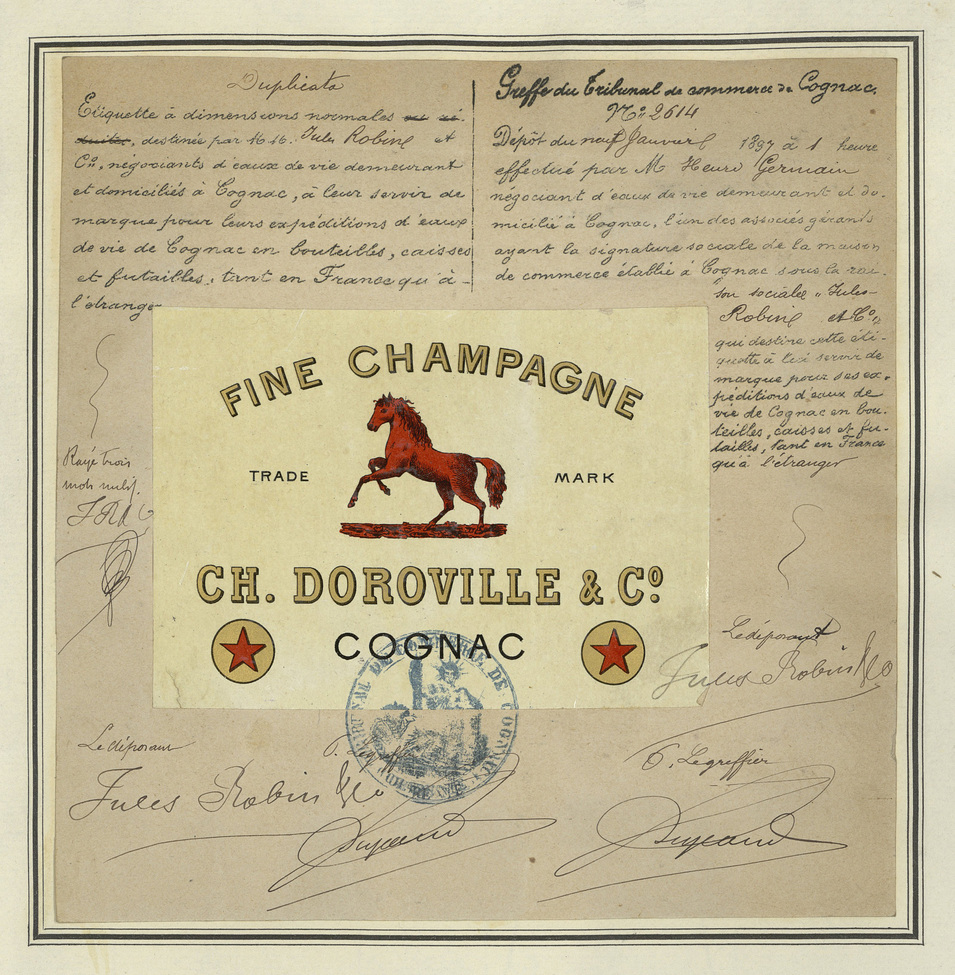 Duplicata
Etiquette à dimensions normales ou ré-
duites, destinée par M.M. Jules Robin et
Cie, négociants d'eaux de vie demeurant
et domiciliés à Cognac, à leur servir de
marque pour leurs expéditions d'eaux
de vie de Cognac en bouteilles, caisses
et futailles, tant en France qu'à
l'étranger
Rayé trois
mots nuls.
JR & C
Greffe du Tribunal de commerce de Cognac.
No 2614
Dépôt du neuf Janvier 1897 à 1 heure
effectué par M Henri Germain
négociant d'eaux de vie demeurant et do-
micilié à Cognac, l'un des associés gérants
ayant la signature sociale de la maison
de commerce établie à Cognac sous la rai-
son sociale "Jules
Robin et Co"
qui destine cette éti-
quette à lui servir de
marque pour ses ex-
péditions d'eaux de
vie de Cognac en bou-
teilles, caisses et fu-
tailles, tant en France
qu'à l'étranger
FINE CHAMPAGNE
TRADE MARK
CH. DOROVILLE & Co.
COGNAC
TRIBUNAL DE COMMERCE DE COGNAC
Le déposant
Jules Robin & Co
Le déposant
Jules Robin & Co
P. Le greffier
P. Le greffier